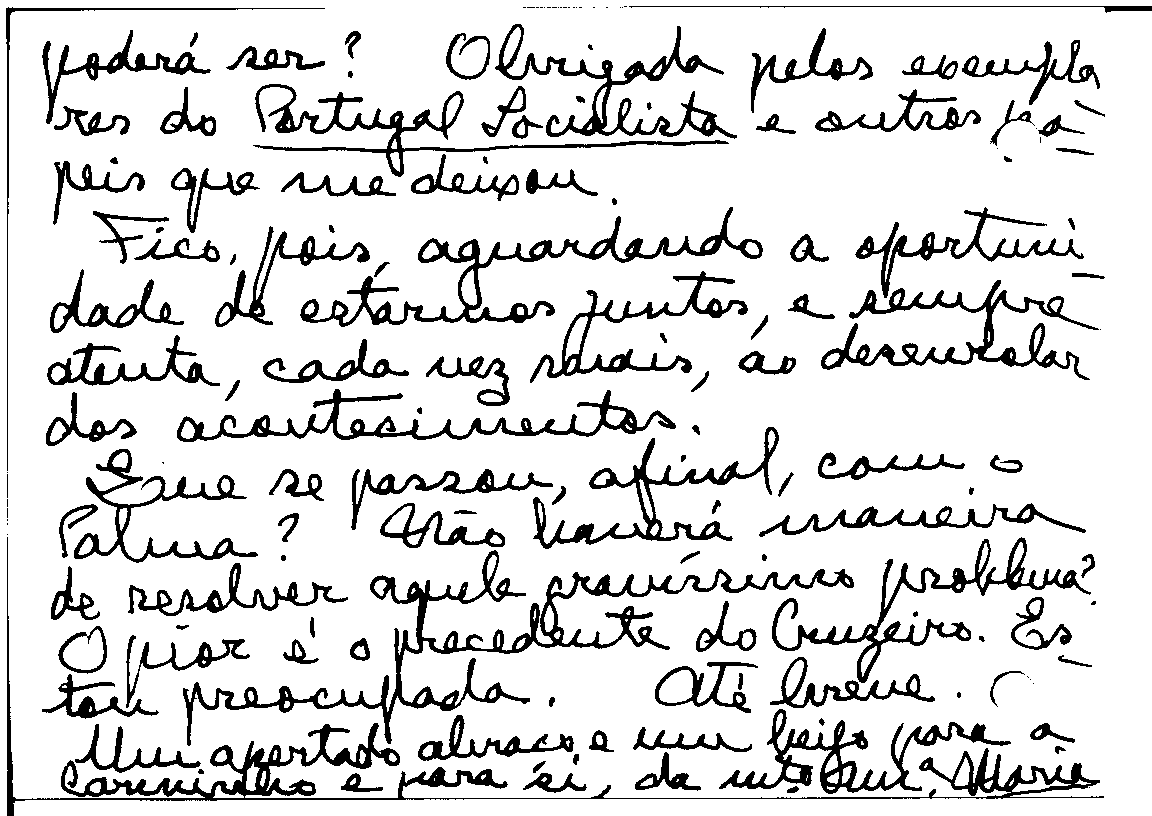 poderá ser? Obrigada pelos exempla
res do Portugal Socialista e outros pa-
peis que me deixou.
Fico, pois, aguardando a oportuni
dade de estarmos juntos, e sempre
atenta, cada vez mais, ao desenrolar
dos acontecimentos.
Que se passou, afinal, com o
Palma? Não haverá maneira
de resolver aquele gravíssimo problema?
O pior é o precedente do Cruzeiro. Es-
tou preocupada. Até breve.
Um apertado abraço e um beijo para a
e para si, da mto am.ª Maria